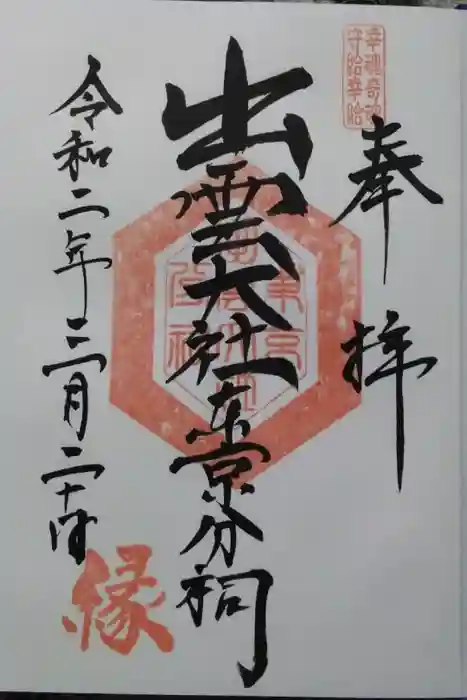 幸魂奇魂
守給幸給
奉拝
出雲大社東京分祠
令和二年三月二十日
縁